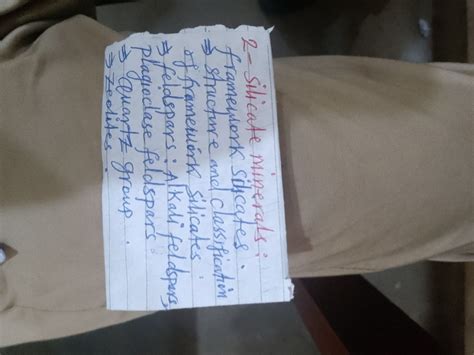 2- Silicate minerals:
framework silicates:
⇒ structure and classification
of framework silicates:
⇒ feldspars: Alkali feldspars,
plagioclase feldspars.
⇒ quartz group.
⇒ zeolites.